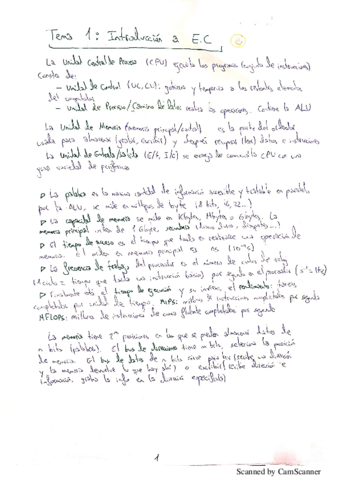 Tema 1: Introducción a E.C
La Unidad Central de Proceso (CPU) ejecuta los programas (conjunto de instrucciones)
Consta de:
- Unidad de Control (UC, CU): gobierna y temporiza a los restantes elementos
del computador
- Unidad de Proceso / Camino de Datos: realiza las operaciones. Contiene la ALU
La Unidad de Memoria (memoria principal/central) es la parte del
usada para almacenar y después recuperar datos e instrucciones
La Unidad de Entrada/Salida (E/S, I/O) se encarga de comunicar la CPU con una
gran variedad de periféricos
▷ La palabra es la máxima cantidad de información accesible y tratable en paralelo
por la ALU, se mide en múltiplos de byte (8 bits, 16, 32...)
▷ La capacidad de memoria se mide en Kbytes, Mbytes o Gbytes. La
memoria principal
▷ El tiempo de acceso es el tiempo que tarda en realizarse una operación de
memoria. El orden en memoria principal es ns (10⁻⁹s)
▷ La frecuencia de trabajo del procesador es el número de ciclos de reloj
(1 ciclo = tiempo que tarda una instrucción básica) por segundo en el procesador
▷ Finalmente está el tiempo de ejecución y su inverso, el rendimiento: tareas
completadas por unidad de tiempo. MIPS: millones de instrucciones completadas por segundo
MFLOPS: millones de instrucciones de coma flotante completadas por segundo
La memoria tiene 2ᵐ posiciones en las que se pueden almacenar datos de
n bits (palabras). El bus de direcciones tiene m bits, selecciona la posición
de memoria. El bus de datos de n bits sirve para leer (recibe una dirección
y la memoria devuelve lo que hay ahí) o escribir (recibe dirección e
información, graba la info en la dirección especificada)
1
Scanned by CamScanner